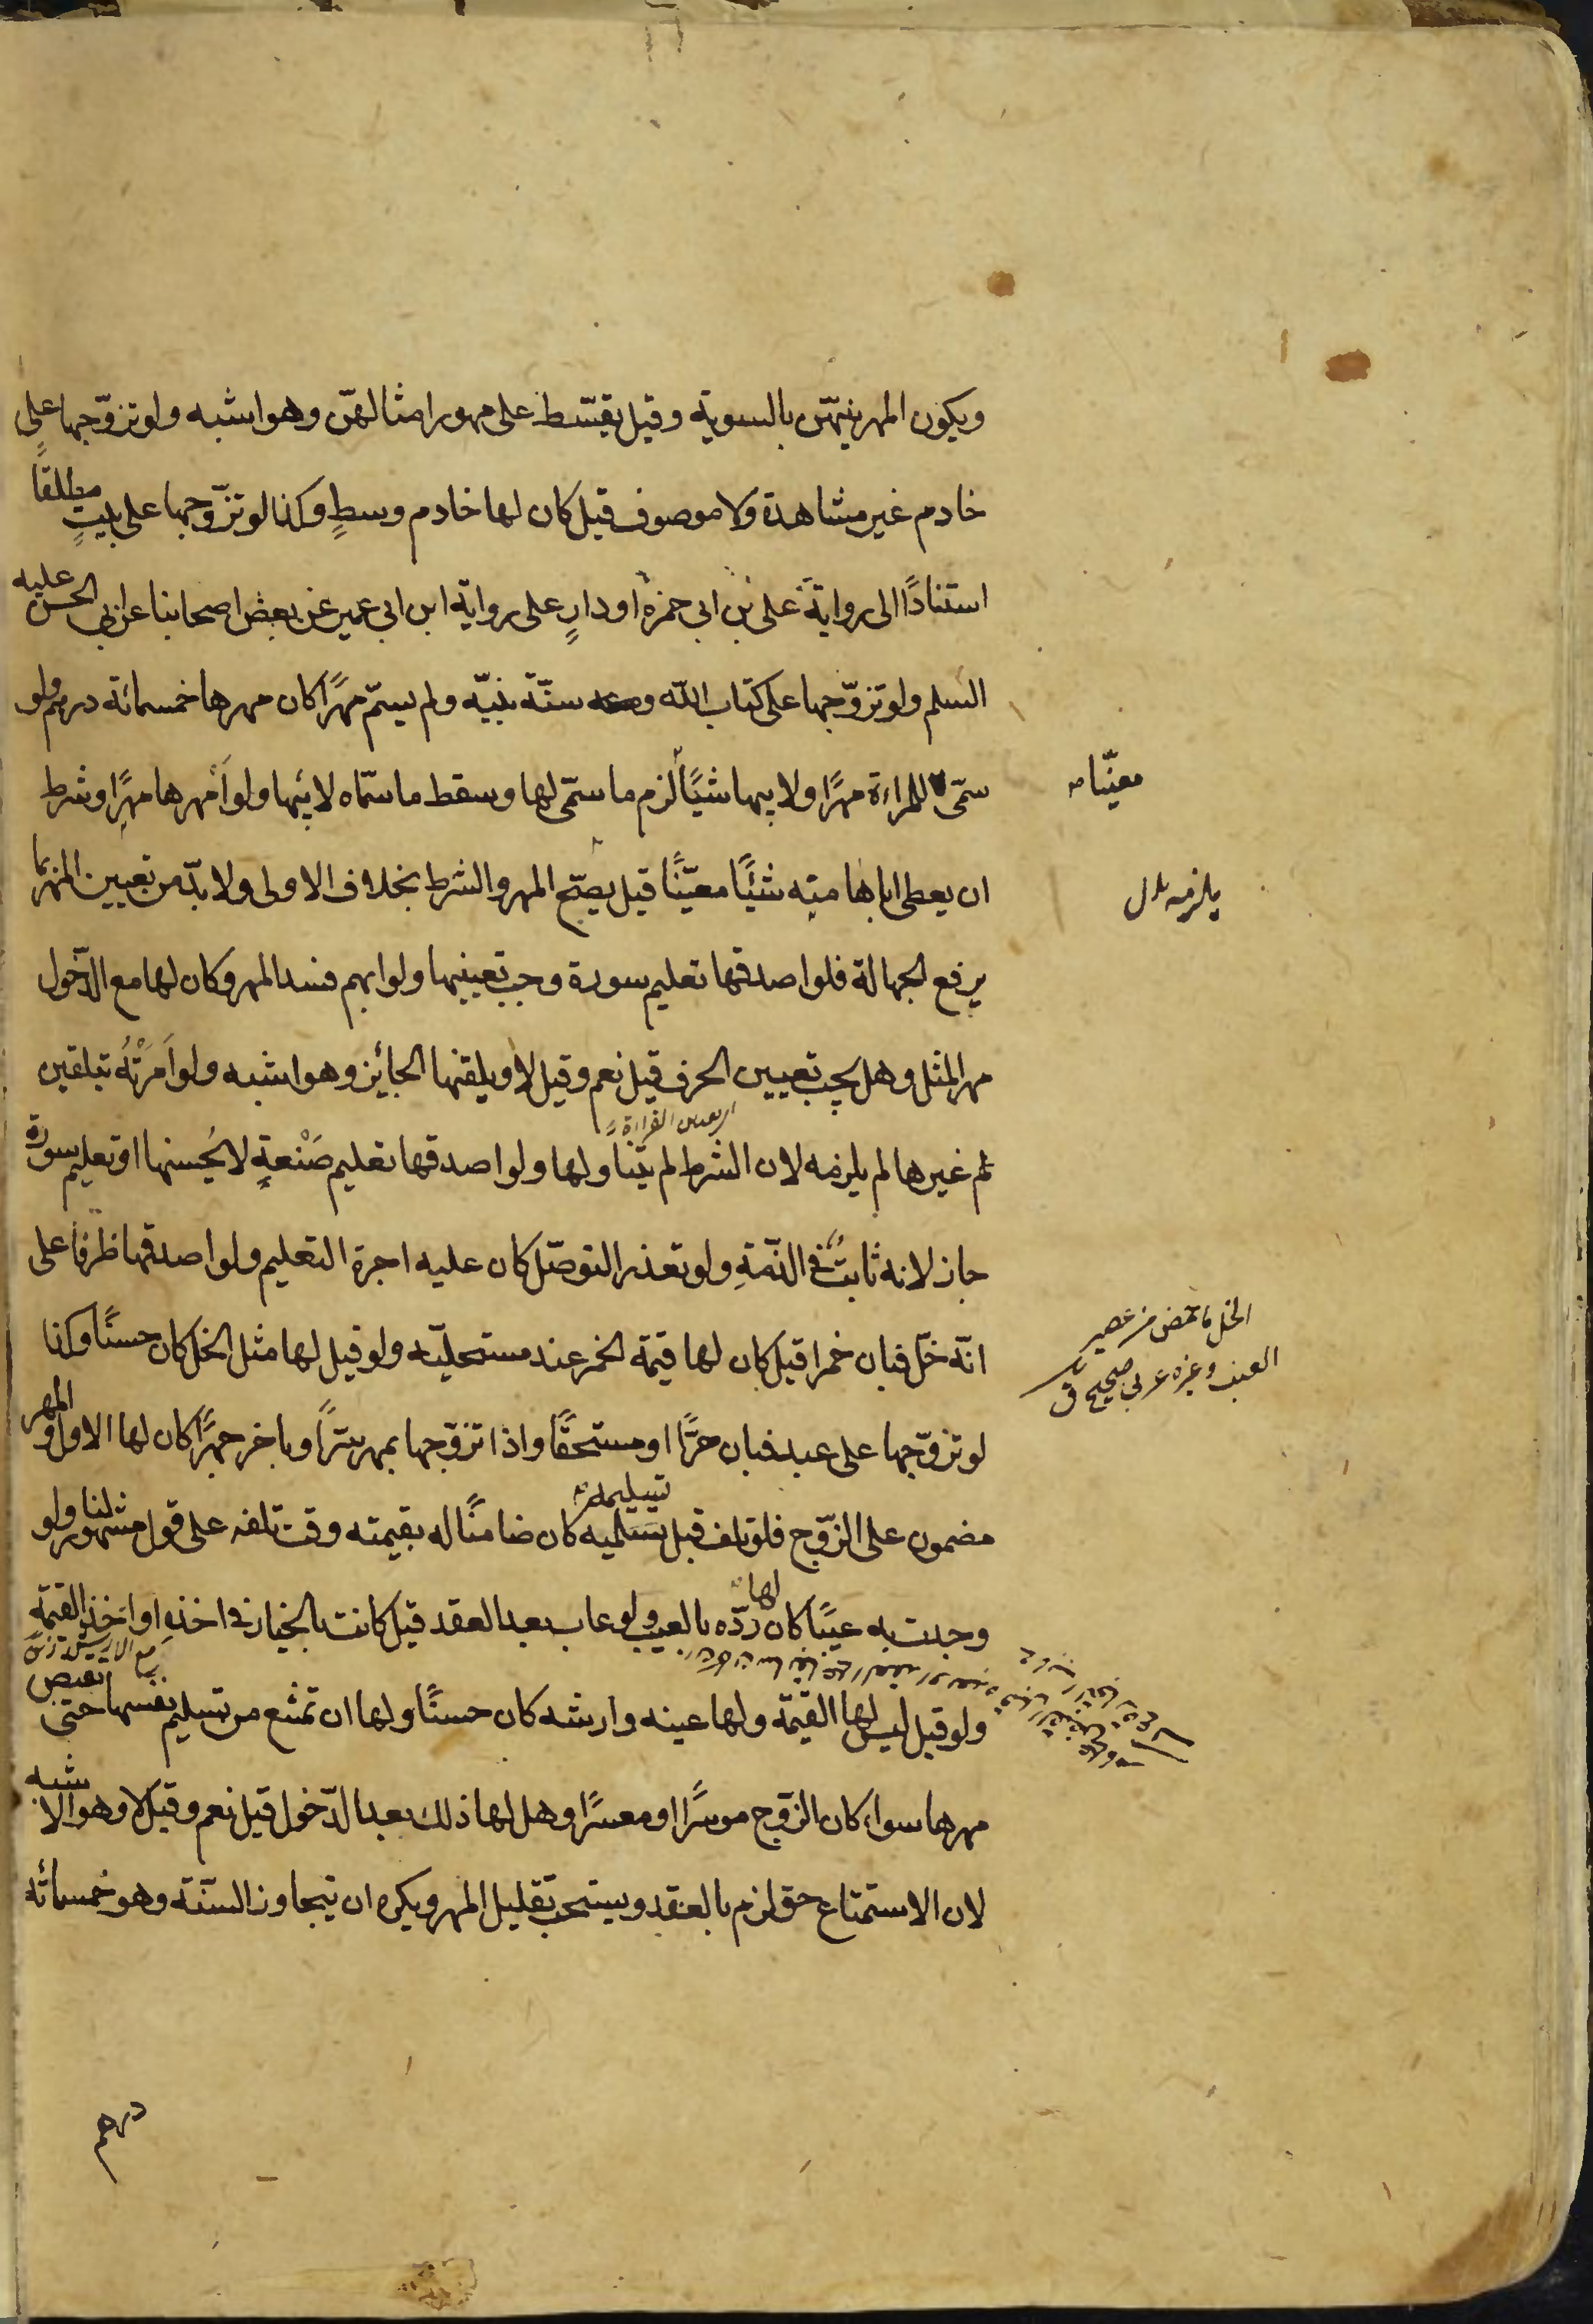 ويكون المهر بينهن بالسوية وقيل يقسّط على مهور امثالهنّ وهو اشبه ولو تزوّجها على
خادم غير مشاهدة ولا موصوف قيل كان لها خادم وسطٍ وكذا لو تزوّجها على بيتٍ مطلقاً
استناداً الى رواية على بن ابى حمزه او دارٍ على رواية ابن ابى عمير عن بعض اصحابنا عن ابى الحسن عليه
السلم ولو تزوّجها على كتاب اللّه وسنّة نبيّه ولم يسمّ مهرًا كان مهرها خمسمائة درهم ولو
سمّى للمراءة مهرًا ولابيها شيئًا لزم ما سمّى لها وسقط ما سمّاه لابيها ولو اَمهرها مهرًا وشرط
معيّنا
ان يعطى اباها منه شيئًا معيّنًا قيل يصحّ المهر والشرط بخلاف الاولى ولا بدّ من تعيين المهر بما
يرفع الجهالة فلو اصدقها تعليم سورة وجب تعيينها ولو ابهم فسد المهر وكان لها مع الدّخول
مهر المثل وهل يجب تعيين الحرف قيل نعم وقيل لا ويلقنها الجائز وهو اشبه ولو اَمرَتْهُ بتلقين
غيرها لم يلزمه لان الشرط لم يتناولها ولو اصدقها تعليم صَنْعةٍ لا يُحسنها او تعليم سورة
جاز لانه ثابتٌ فى الذّمةِ ولو تعذر التوصّل كان عليه اجرة التعليم ولو اصدقها ظرفا على
انّه خلّ فبان خمرا قيل كان لها قيمة الخمر عند مستحليّه ولو قيل لها مثل الخل كان حسنًا وكذا
الخل ما حمض من عصير
العنب وغيره عربى صحيح ق
لو تزوّجها على عبد فبان حرًّا او مستحقًّا واذا تزوّجها بمهر سرًّا وباخر جهرًا كان لها الاول والمهر
مضمون على الزّوج فلو تلف قبل تسليمه كان ضامنًا له بقيمته وقت تلفه على قول مشهور لنا ولو
وجدت به عيبًا كان لها ردّه بالعيب ولو عاب بعد العقد قيل كانت بالخيار فى اخذه او اَخذ القيمة
ولو قيل ليس لها القيمة ولها عينه وارشه كان حسنًا ولها ان تمتنع من تسليم نفسها حتى تقبض
مهرها سواء كان الزّوج موسرًا او معسرًا وهل لها ذلك بعد الدّخول قيل نعم وقيل لا وهو الاشبه
لان الاستمتاع حق لزم بالعقد ويستحب تقليل المهر ويكره ان يتجاوز السنّة وهو خمسمائة
درهم